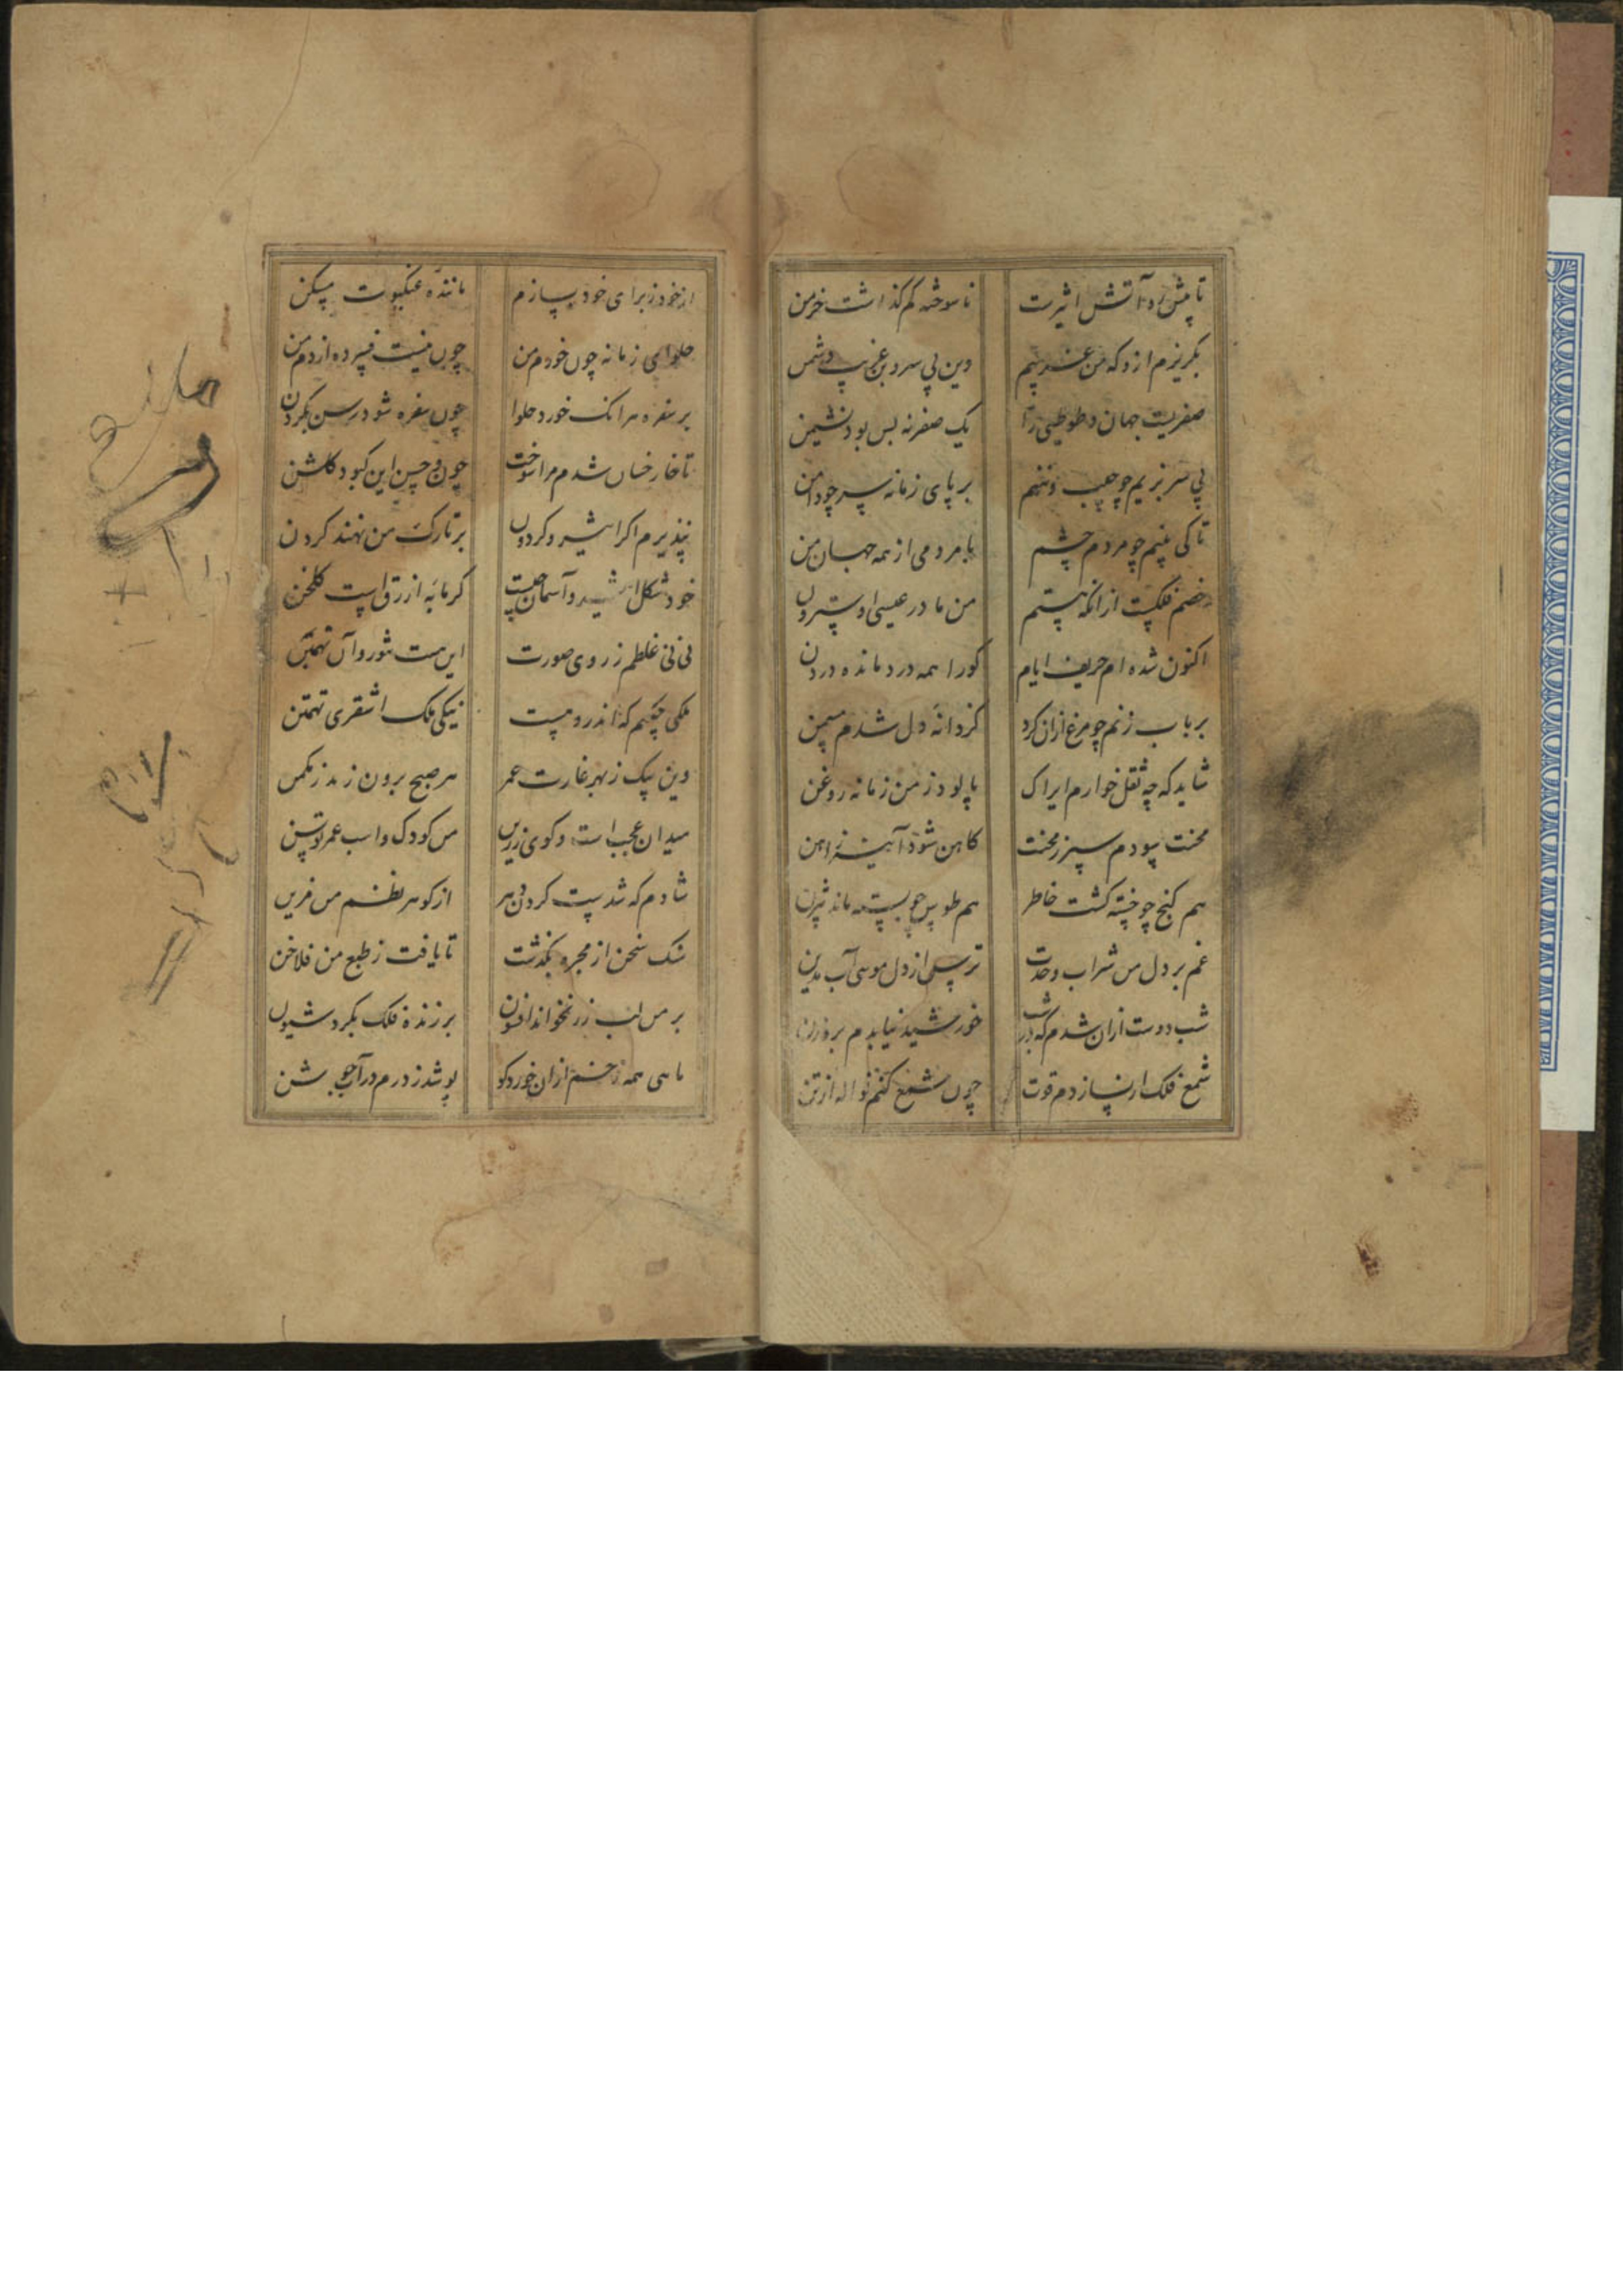 تا پیش او آتش اثیرت ناسوخته کم گذاشت خرمن
بگریزم ازو که من غریبم وین بی سر و بن غریب دشمن
صفریست جهان و طوطیی را یک صفر نه بس بود نشیمن
بی سر بزیم چو جیب و ننهم بر پای زمانه سر چو دامن
تا کی بینم چو مردم چشم با مردمی از همه جهان من
خصم فلکست از انکه هستم من مادر عیسی او سترون
اکنون شده ام حریف ایام کو را همه درد مانده در دن
بر باب زنم چو مرغ ازان کرد کز دانه دل شدم مسمن
شاید که چه ثقل خوارم ایراک پالود ز من زمانه روغن
محنت سودم سپر ز محنت کاهن شود آینه ز اهن
هم گنج چو خسته گشت خاطر هم طوس چو بسته ماند بیژن
غم بر دل من شراب وحدت ترسی از دل موسی آب مدین
شب دوست ازان شدم که در شب خورشید نیابدم بروزن
شمع فلک ار نسازدم قوت چون شمع کنم نواله از تن
از خود ز برای خود بسازم ماننده عنکبوت مسکن
حلوای زمانه چون خورم من چون نیست فسرده از دم من
بر سفره هر انک خورد حلوا چون سفره شود رسن بگردن
تا خار خسان شدم مرا سوخت چون چین این کبود گلشن
نپذیرم اگر اثیر و گردون بر تارک من نهند گردن
خود شکل اثیر و آسمان چیست گرمابه ازرق است گلخن
نی نی غلطم ز روی صورت این هست تنور و آن نهنبن
ملکی چکنم که اندرو هست نیکی ملک اشقری تهمتن
وین یک ز بهر غارت عمر هر صبح برون زند ز مکمن
میدان عجب است و گوی زرین من کودک و اسب عمر توسن
شادم که شدست گردن دهر از گوهر نظم من مزین
سنگ سخن از مجره بگذشت تا یافت ز طبع من فلاخن
بر من لب زر نخواند افسون بر زنده فلک نکرد شیون
ماهی همه زخم ازان خورد کو پوشد ز درم در آب جوشن